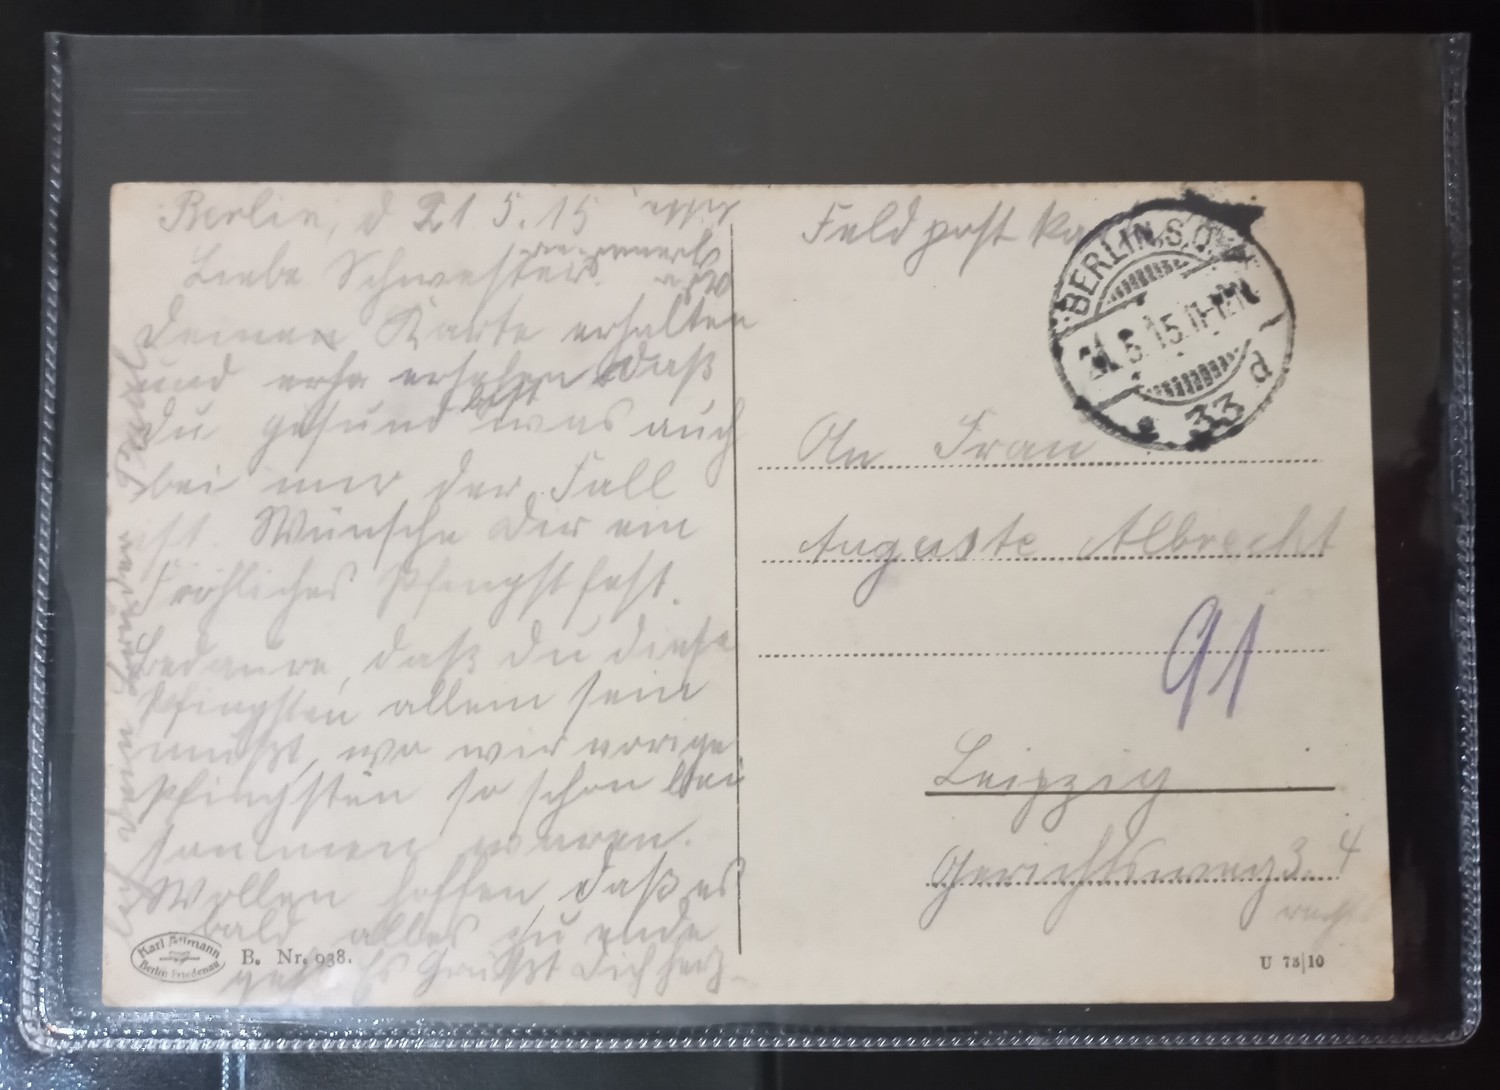 Berlin, d 21 5.15
Liebe Schwester.
Deinen Karte erhalten
und ersehen daß
Du gesund bist was auch
bei mir der Fall
ist. Wünsche Dir ein
fröhliches Pfingstfest.
Bedaure, daß du diese
Pfingsten allein sein
mußt, wo wir vorige
Pfingsten so schön bei
sammen waren.
Wollen hoffen daß es
bald alles zu ende
geht Es Grüßt Dich herz-
lich dein Bruder Paul
Karl
Berlin-Friedenau
B. Nr. 938.
Feldpost Ka
BERLIN S.O.
5.15.11-12
* 33 d
An Frau
Auguste Albrecht
91
Leipzig
Gerichtsweg 3. 4
U 73|10